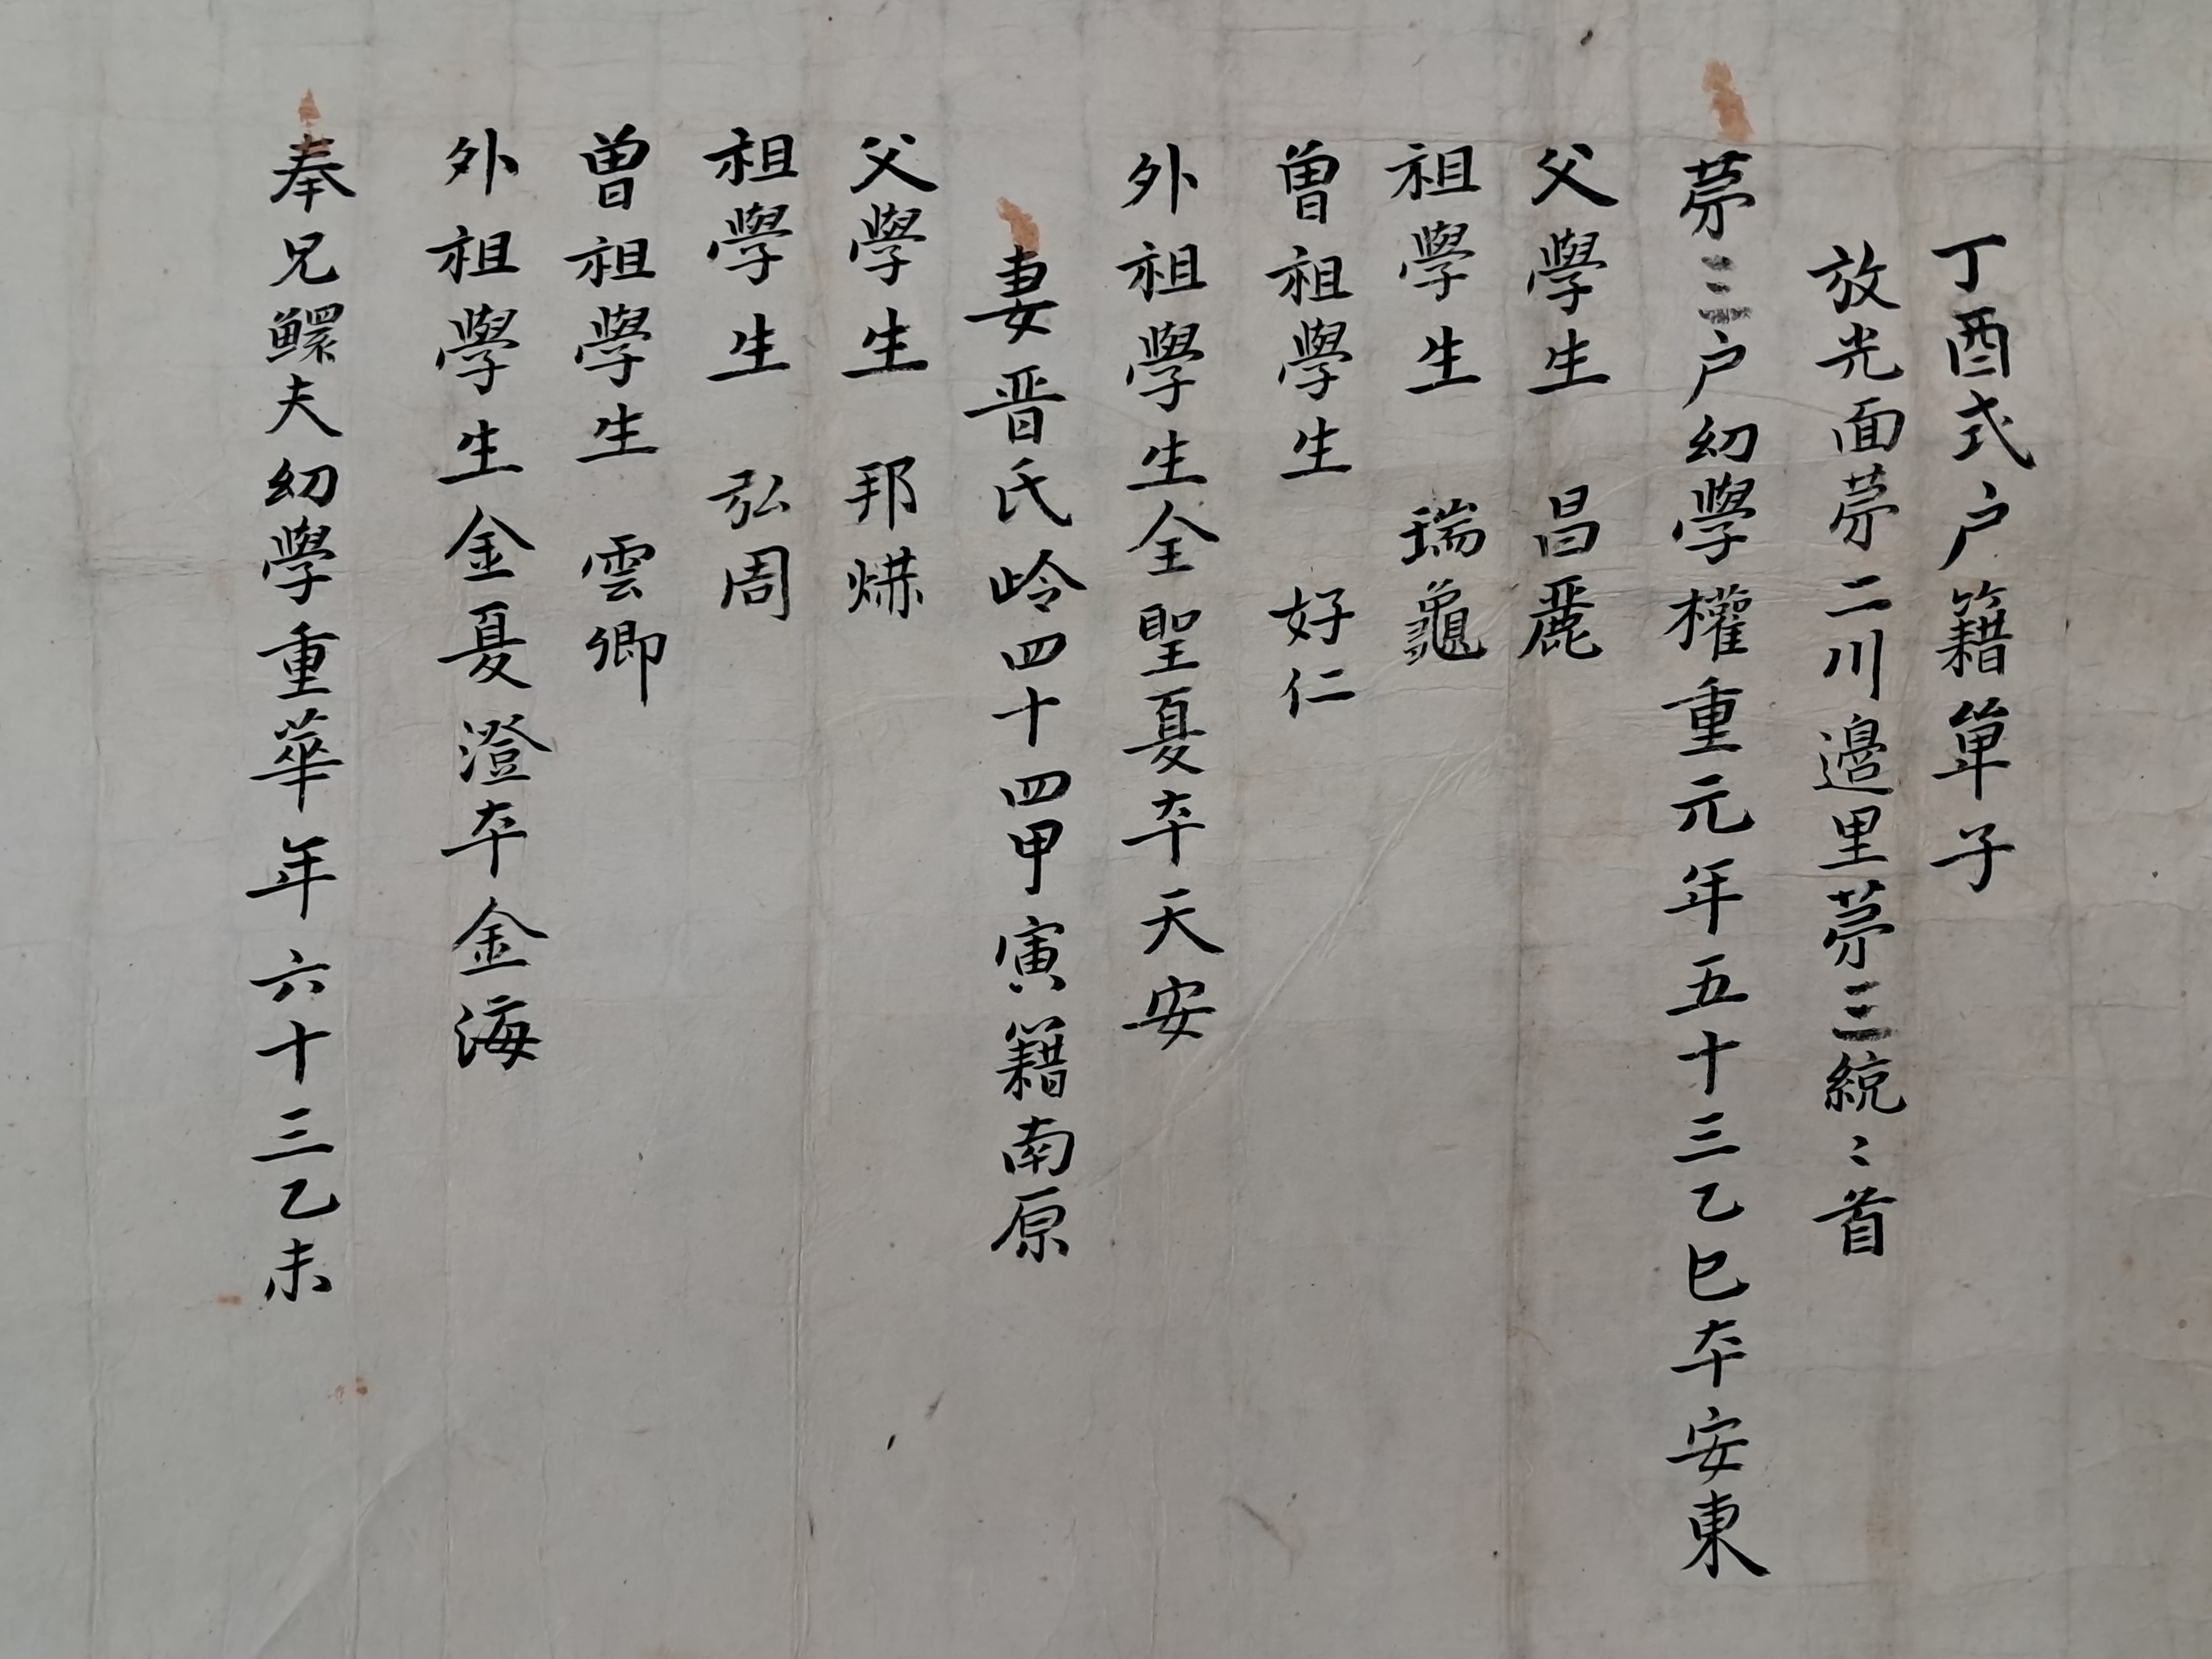 丁酉式户籍單子
放光面苐二川邊里苐三統〻首
苐三户幼學權重元年五十三乙巳夲安東
父學生 昌麗
祖學生 瑞龜
曽祖學生 好仁
外祖學生全聖夏夲天安
妻晋氏岭四十四甲寅籍南原
父學生 邦烘
祖學生 弘周
曽祖學生 雲卿
外祖學生金夏澄夲金海
奉兄鰥夫幼學重華年六十三乙未